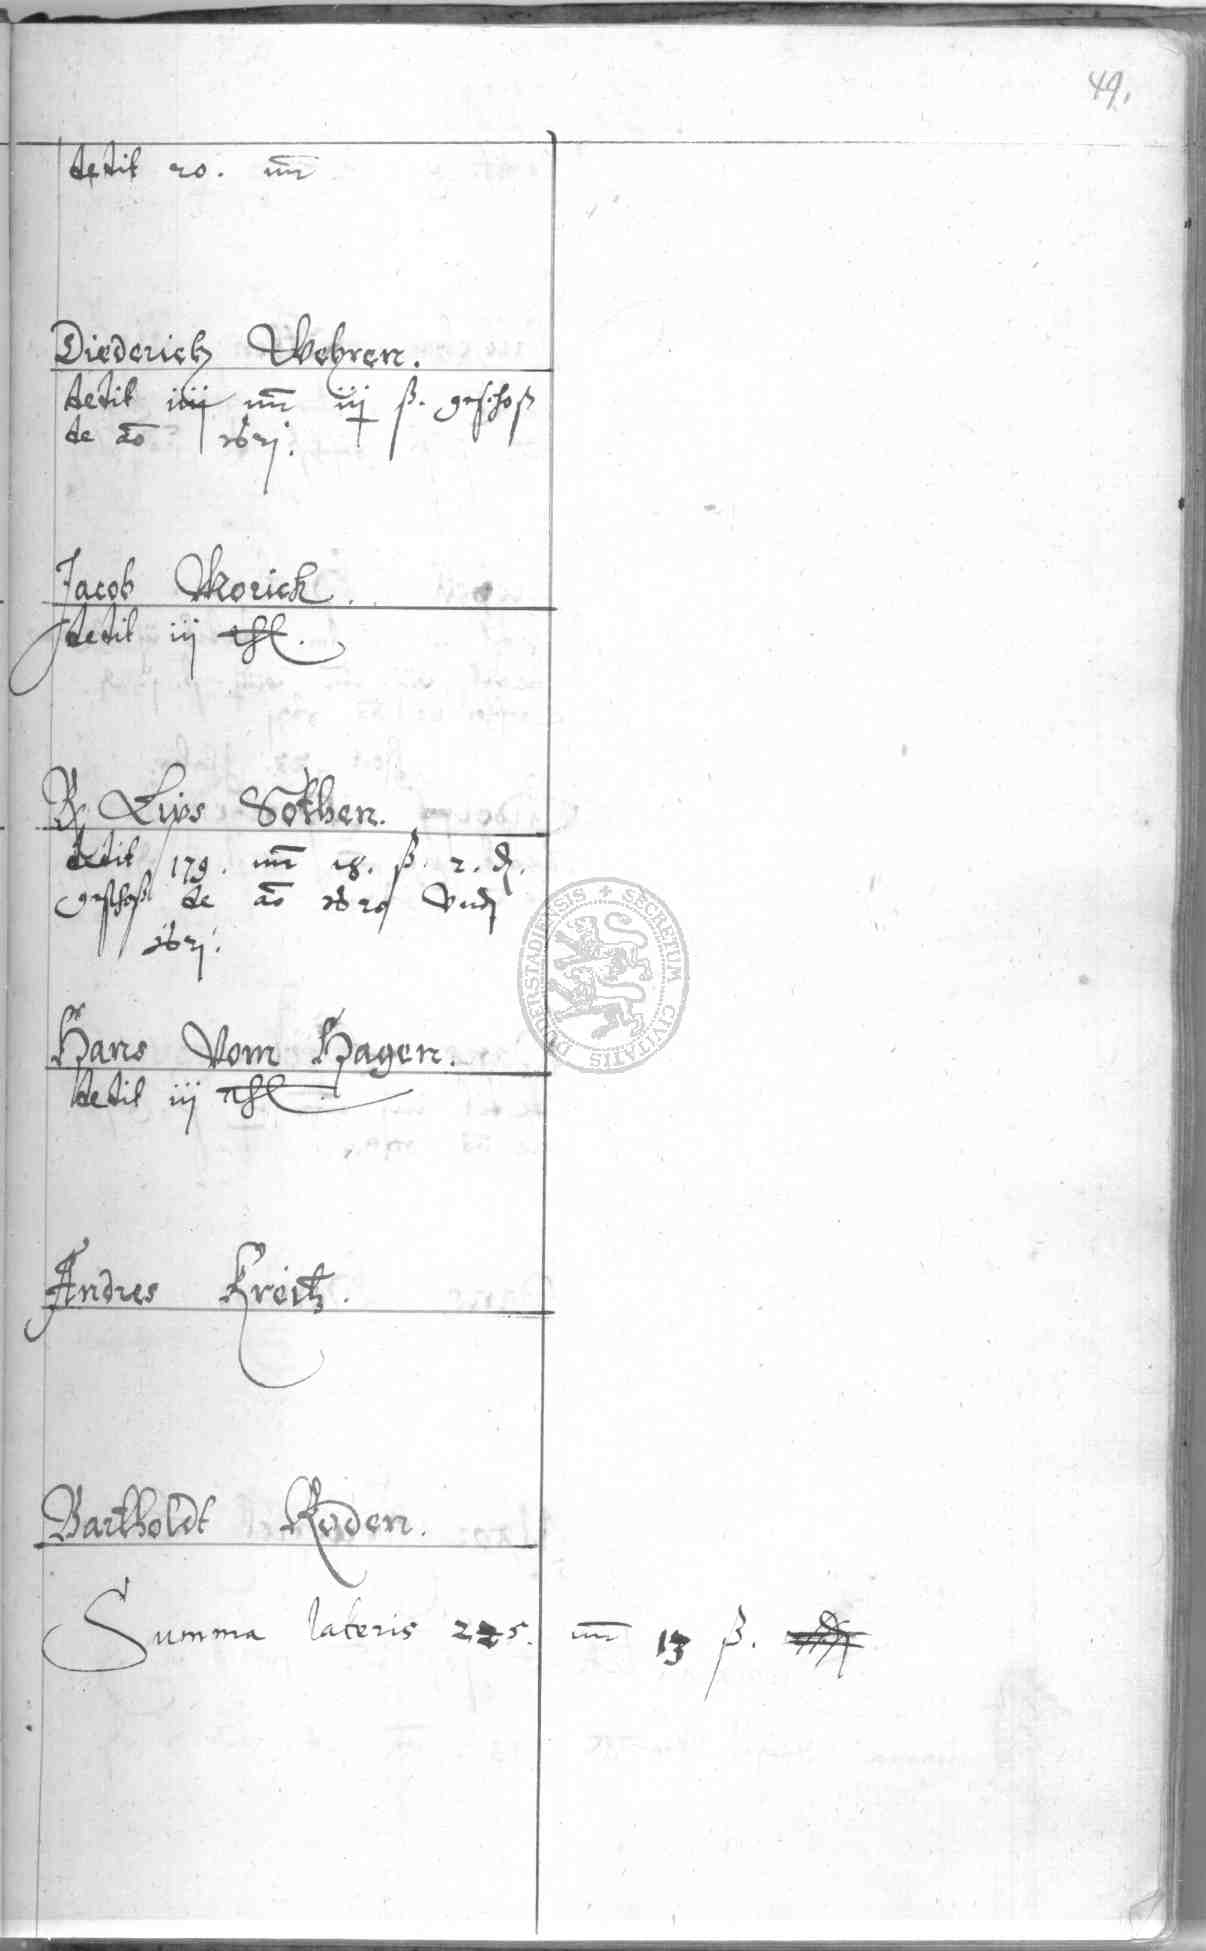 49.
dedit 20. mr
Diederich Wehren.
dedit iiij mr iij ß. geschoß
de ao 1621.
Jacob Morick.
dedit iij thl.
Lips Sothen.
dedit 179. mr 18. ß. 2. d.
geschoß de ao 1620 vnd
1621.
Hans Vom Hagen.
dedit iij thl
Andres Kreitz.
Bartholdt Roden.
Summa lateris 225. mr 13 ß.
SECRETUM CIVITATIS DUDERSTADIENSIS